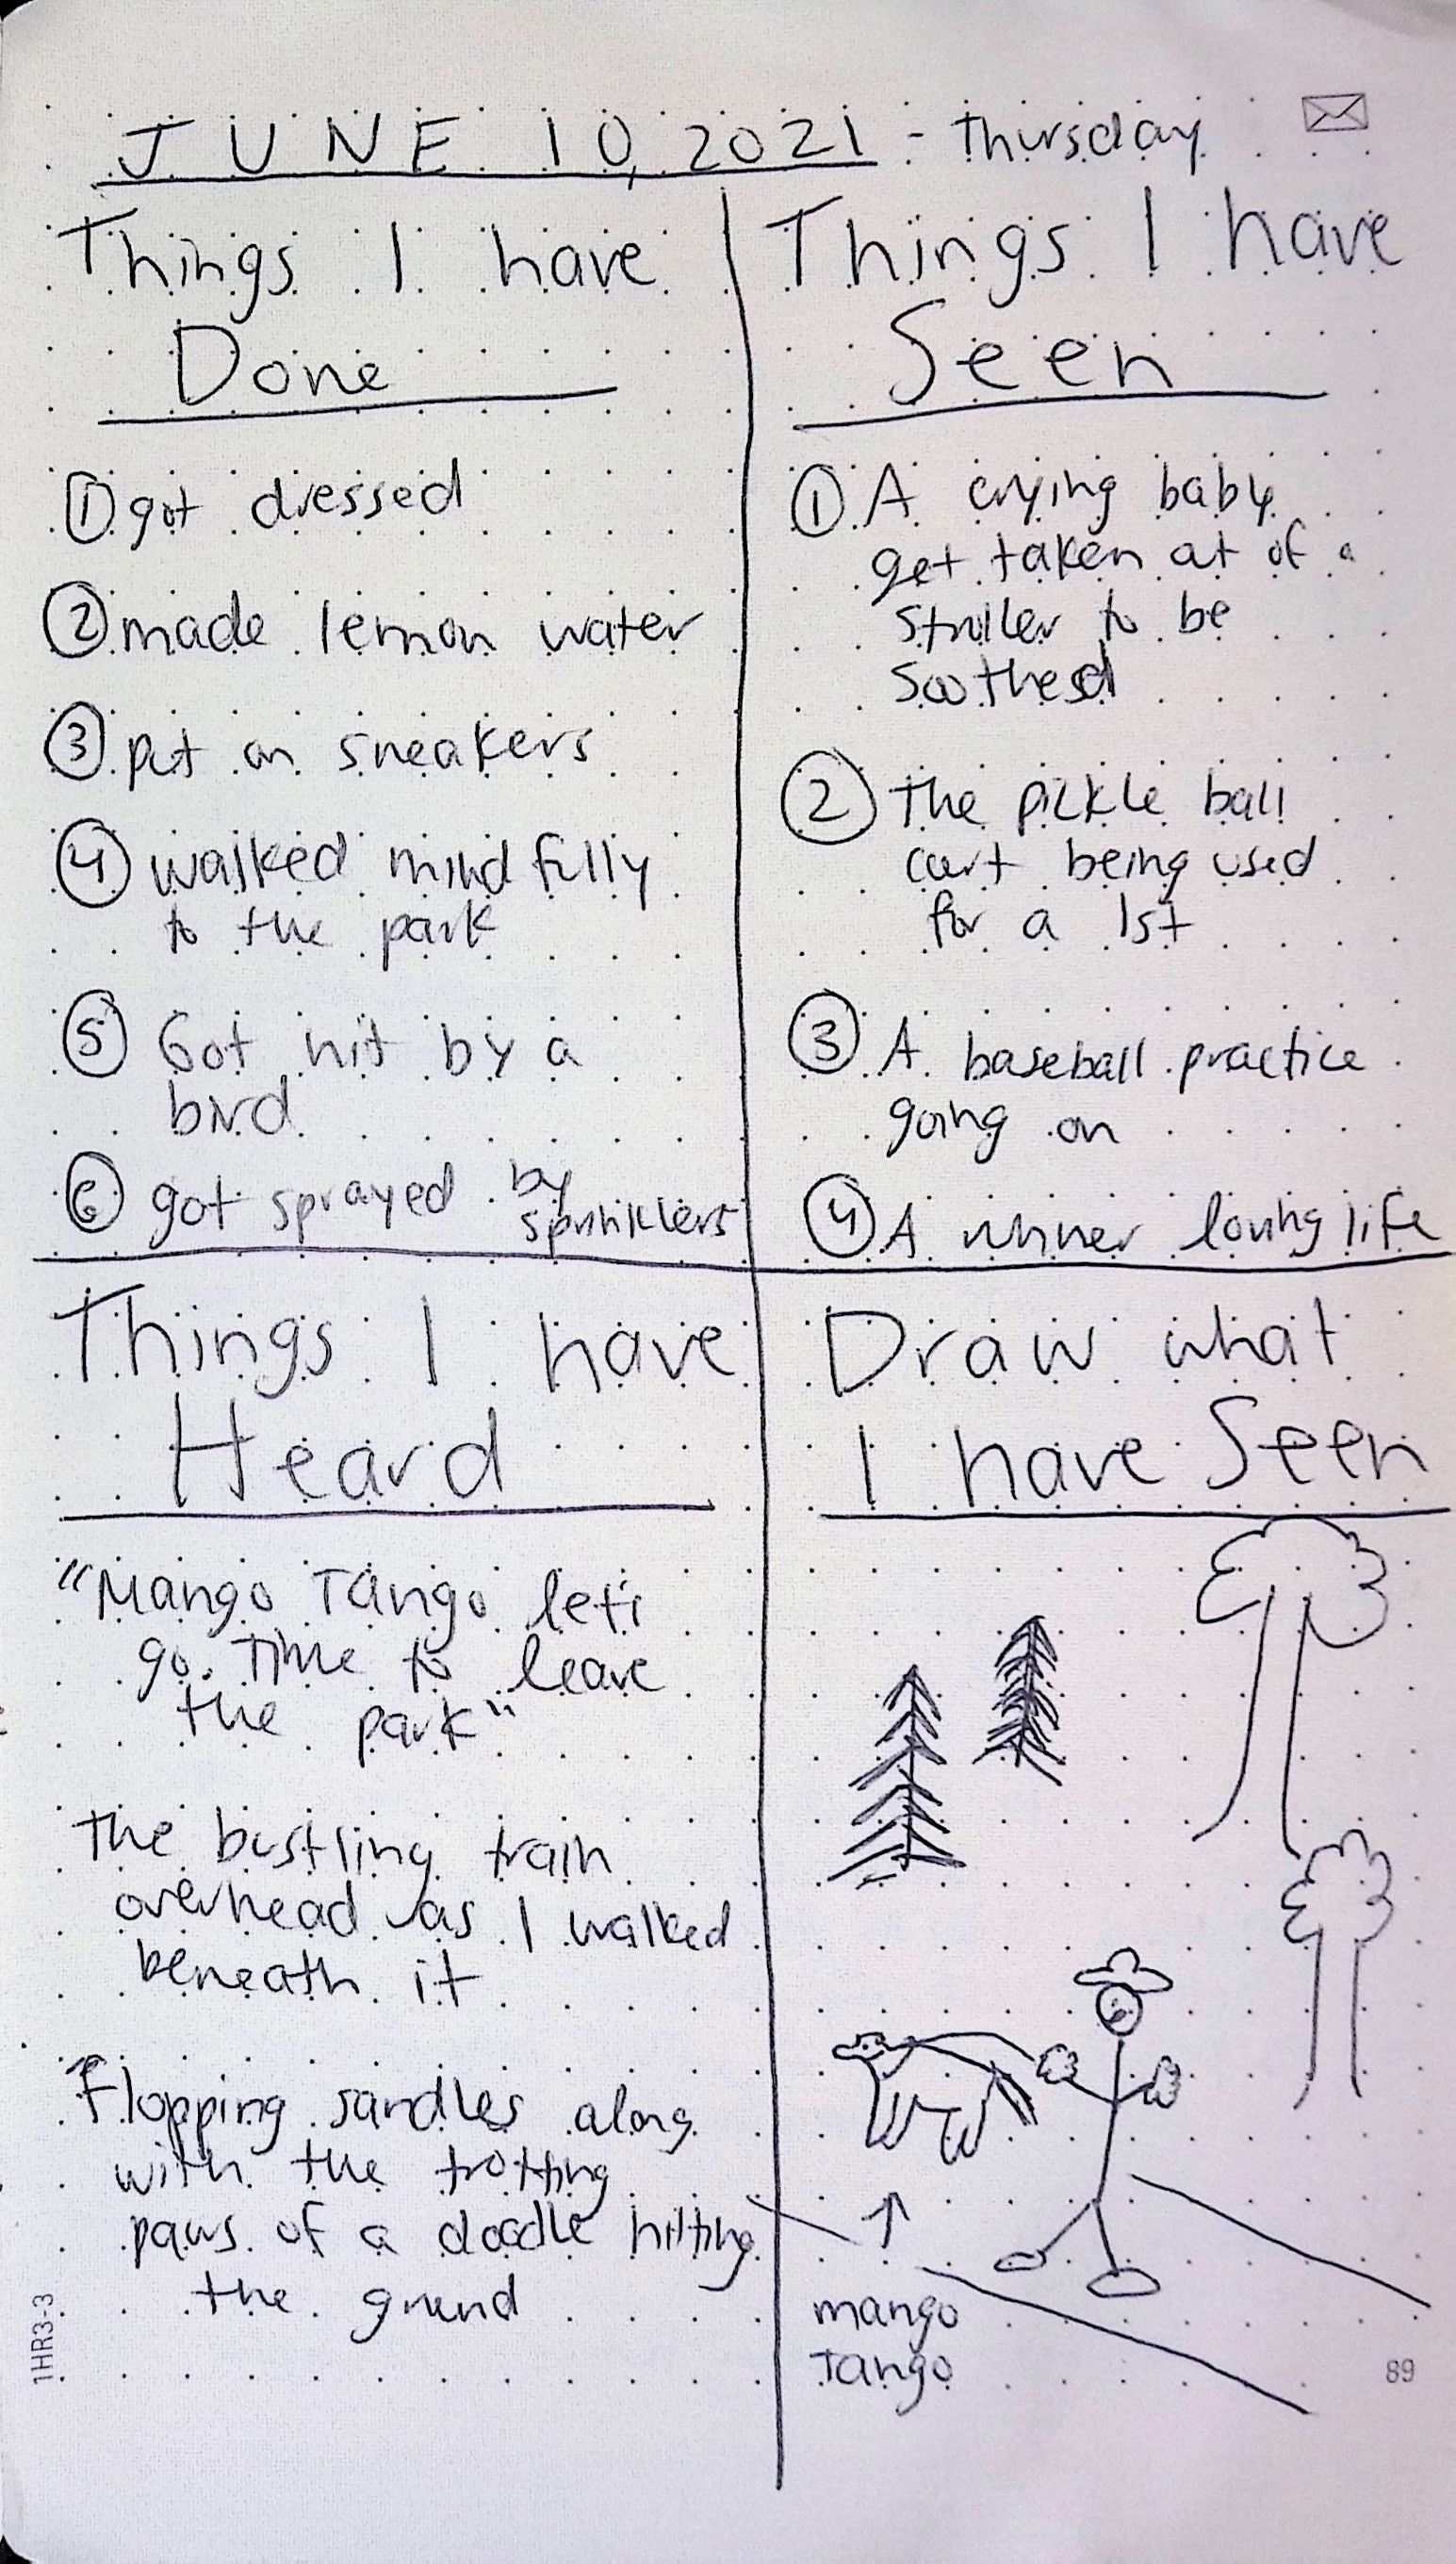 JUNE 10, 2021 - Thursday
Things I have
Done
① got dressed
② made lemon water
③ put on sneakers
④ walked mindfully
to the park
⑤ Got hit by a
bird
⑥ got sprayed by
sprinklers
Things I have
Seen
① A crying baby
get taken at of a
stroller to be
soothed
② The pickle ball
court being used
for a 1st
③ A baseball practice
going on
④ A runner loving life
Things I have
Heard
"Mango Tango let's
go. Time to leave
the park"
The bustling train
overhead as I walked
beneath it
Flopping sandles along
with the trotting
paws of a doodle hitting
the ground
Draw what
I have Seen
mango
Tango
1HR3-3
89